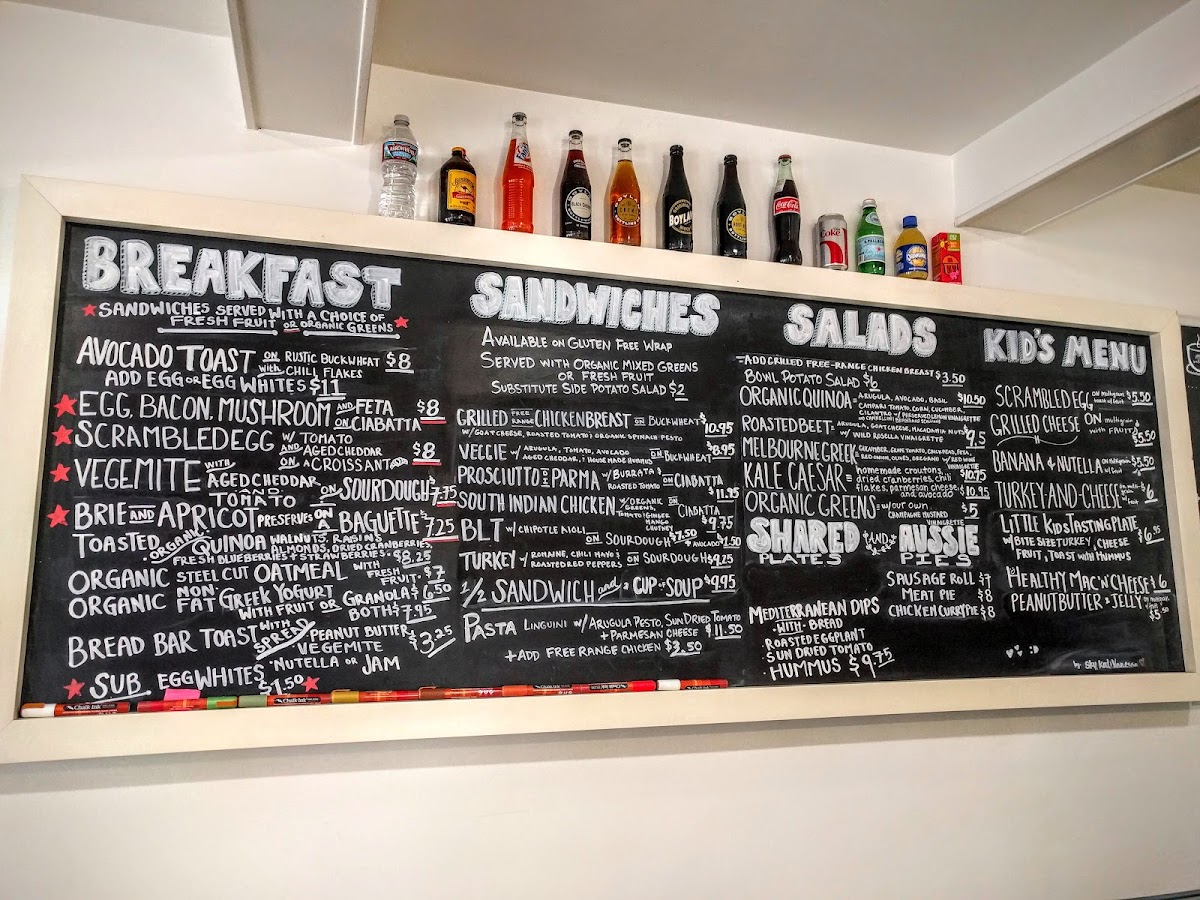 BREAKFAST
SANDWICHES SERVED WITH A CHOICE OF
FRESH FRUIT OR ORGANIC GREENS
AVOCADO TOAST ON RUSTIC BUCKWHEAT with CHILI FLAKES $8
ADD EGG OR EGG WHITES $11
EGG, BACON, MUSHROOM AND FETA ON CIABATTA $8
SCRAMBLED EGG W/ TOMATO AND AGED CHEDDAR ON A CROISSANT $8
VEGEMITE WITH AGED CHEDDAR TOMATO ON SOURDOUGH $7.75
BRIE AND APRICOT PRESERVES ON A BAGUETTE $7.25
TOASTED ORGANIC QUINOA WALNUTS, RAISINS
ALMONDS, DRIED CRANBERRIES,
FRESH BLUEBERRIES + STRAWBERRIES $8.25
ORGANIC STEEL CUT OATMEAL WITH FRESH FRUIT $7
ORGANIC NON-FAT GREEK YOGURT
WITH FRUIT OR GRANOLA $6.50
BOTH $7.95
BREAD BAR TOAST WITH SPREAD PEANUT BUTTER $3.25
VEGEMITE
NUTELLA OR JAM
SUB EGG WHITES $1.50
SANDWICHES
AVAILABLE ON GLUTEN FREE WRAP
SERVED WITH ORGANIC MIXED GREENS
OR FRESH FRUIT
SUBSTITUTE SIDE POTATO SALAD $2
GRILLED FREE RANGE CHICKEN BREAST ON BUCKWHEAT $10.95
W/ GOAT CHEESE, ROASTED TOMATO, ORGANIC SPINACH PESTO
VEGGIE W/ ARUGULA, TOMATO, AVOCADO ON BUCKWHEAT $8.95
AGED CHEDDAR, HOUSE MADE HUMMUS
PROSCIUTTO DI PARMA W/ BURRATA & ROASTED TOMATO ON CIABATTA $11.95
SOUTH INDIAN CHICKEN W/ ORGANIC GREENS, TOMATO, GINGER MANGO CHUTNEY ON CIABATTA $9.75
BLT W/ CHIPOTLE AIOLI ON SOURDOUGH $7.50
AVOCADO $1.50
TURKEY W/ ROMAINE, CHILI MAYO & ROASTED RED PEPPERS ON SOURDOUGH $9.25
1/2 SANDWICH and a CUP OF SOUP $9.95
PASTA LINGUINI W/ ARUGULA PESTO, SUN DRIED TOMATO
+ PARMESAN CHEESE $11.50
+ ADD FREE RANGE CHICKEN $3.50
SALADS
ADD GRILLED FREE-RANGE CHICKEN BREAST $3.50
BOWL POTATO SALAD $6
ORGANIC QUINOA = ARUGULA, AVOCADO, BASIL, $10.50
CAMPARI TOMATO, CORN, CUCUMBER,
CILANTRO
ROASTED BEET = ARUGULA, GOAT CHEESE, MACADAMIA NUTS $9.5
W/ WILD ROSELLA VINAIGRETTE
MELBOURNE GREEK CUCUMBER, TOMATO, CHICKPEAS, FETA,
RED ONION, OLIVES, OREGANO W/ RED WINE VINAIGRETTE $10.75
KALE CAESAR = homemade croutons, dried cranberries, chili flakes, parmesan cheese, and avocado $10.95
ORGANIC GREENS = w/ our own CHAMPAGNE MUSTARD VINAIGRETTE $5
SHARED PLATES
AND
AUSSIE PIES
SAUSAGE ROLL $7
MEAT PIE $8
CHICKEN CURRY PIE $8
MEDITERRANEAN DIPS
- WITH - BREAD
ROASTED EGGPLANT
SUN DRIED TOMATO
HUMMUS $9.75
KID'S MENU
SCRAMBLED EGG ON multigrain $5.50
GRILLED CHEESE ON multigrain with FRUIT $5.50
BANANA & NUTELLA $5.50
TURKEY AND CHEESE $6
LITTLE KIDS TASTING PLATE $6.95
W/ BITE SIZE TURKEY, CHEESE
FRUIT, TOAST WITH HUMMUS
HEALTHY MAC 'N' CHEESE $6
PEANUT BUTTER & JELLY $5.50
ARROWHEAD
BLACK CHERRY
BOYLAN
Coca-Cola
Coke
Chalk Ink
Chalk Ink
Chalk Ink